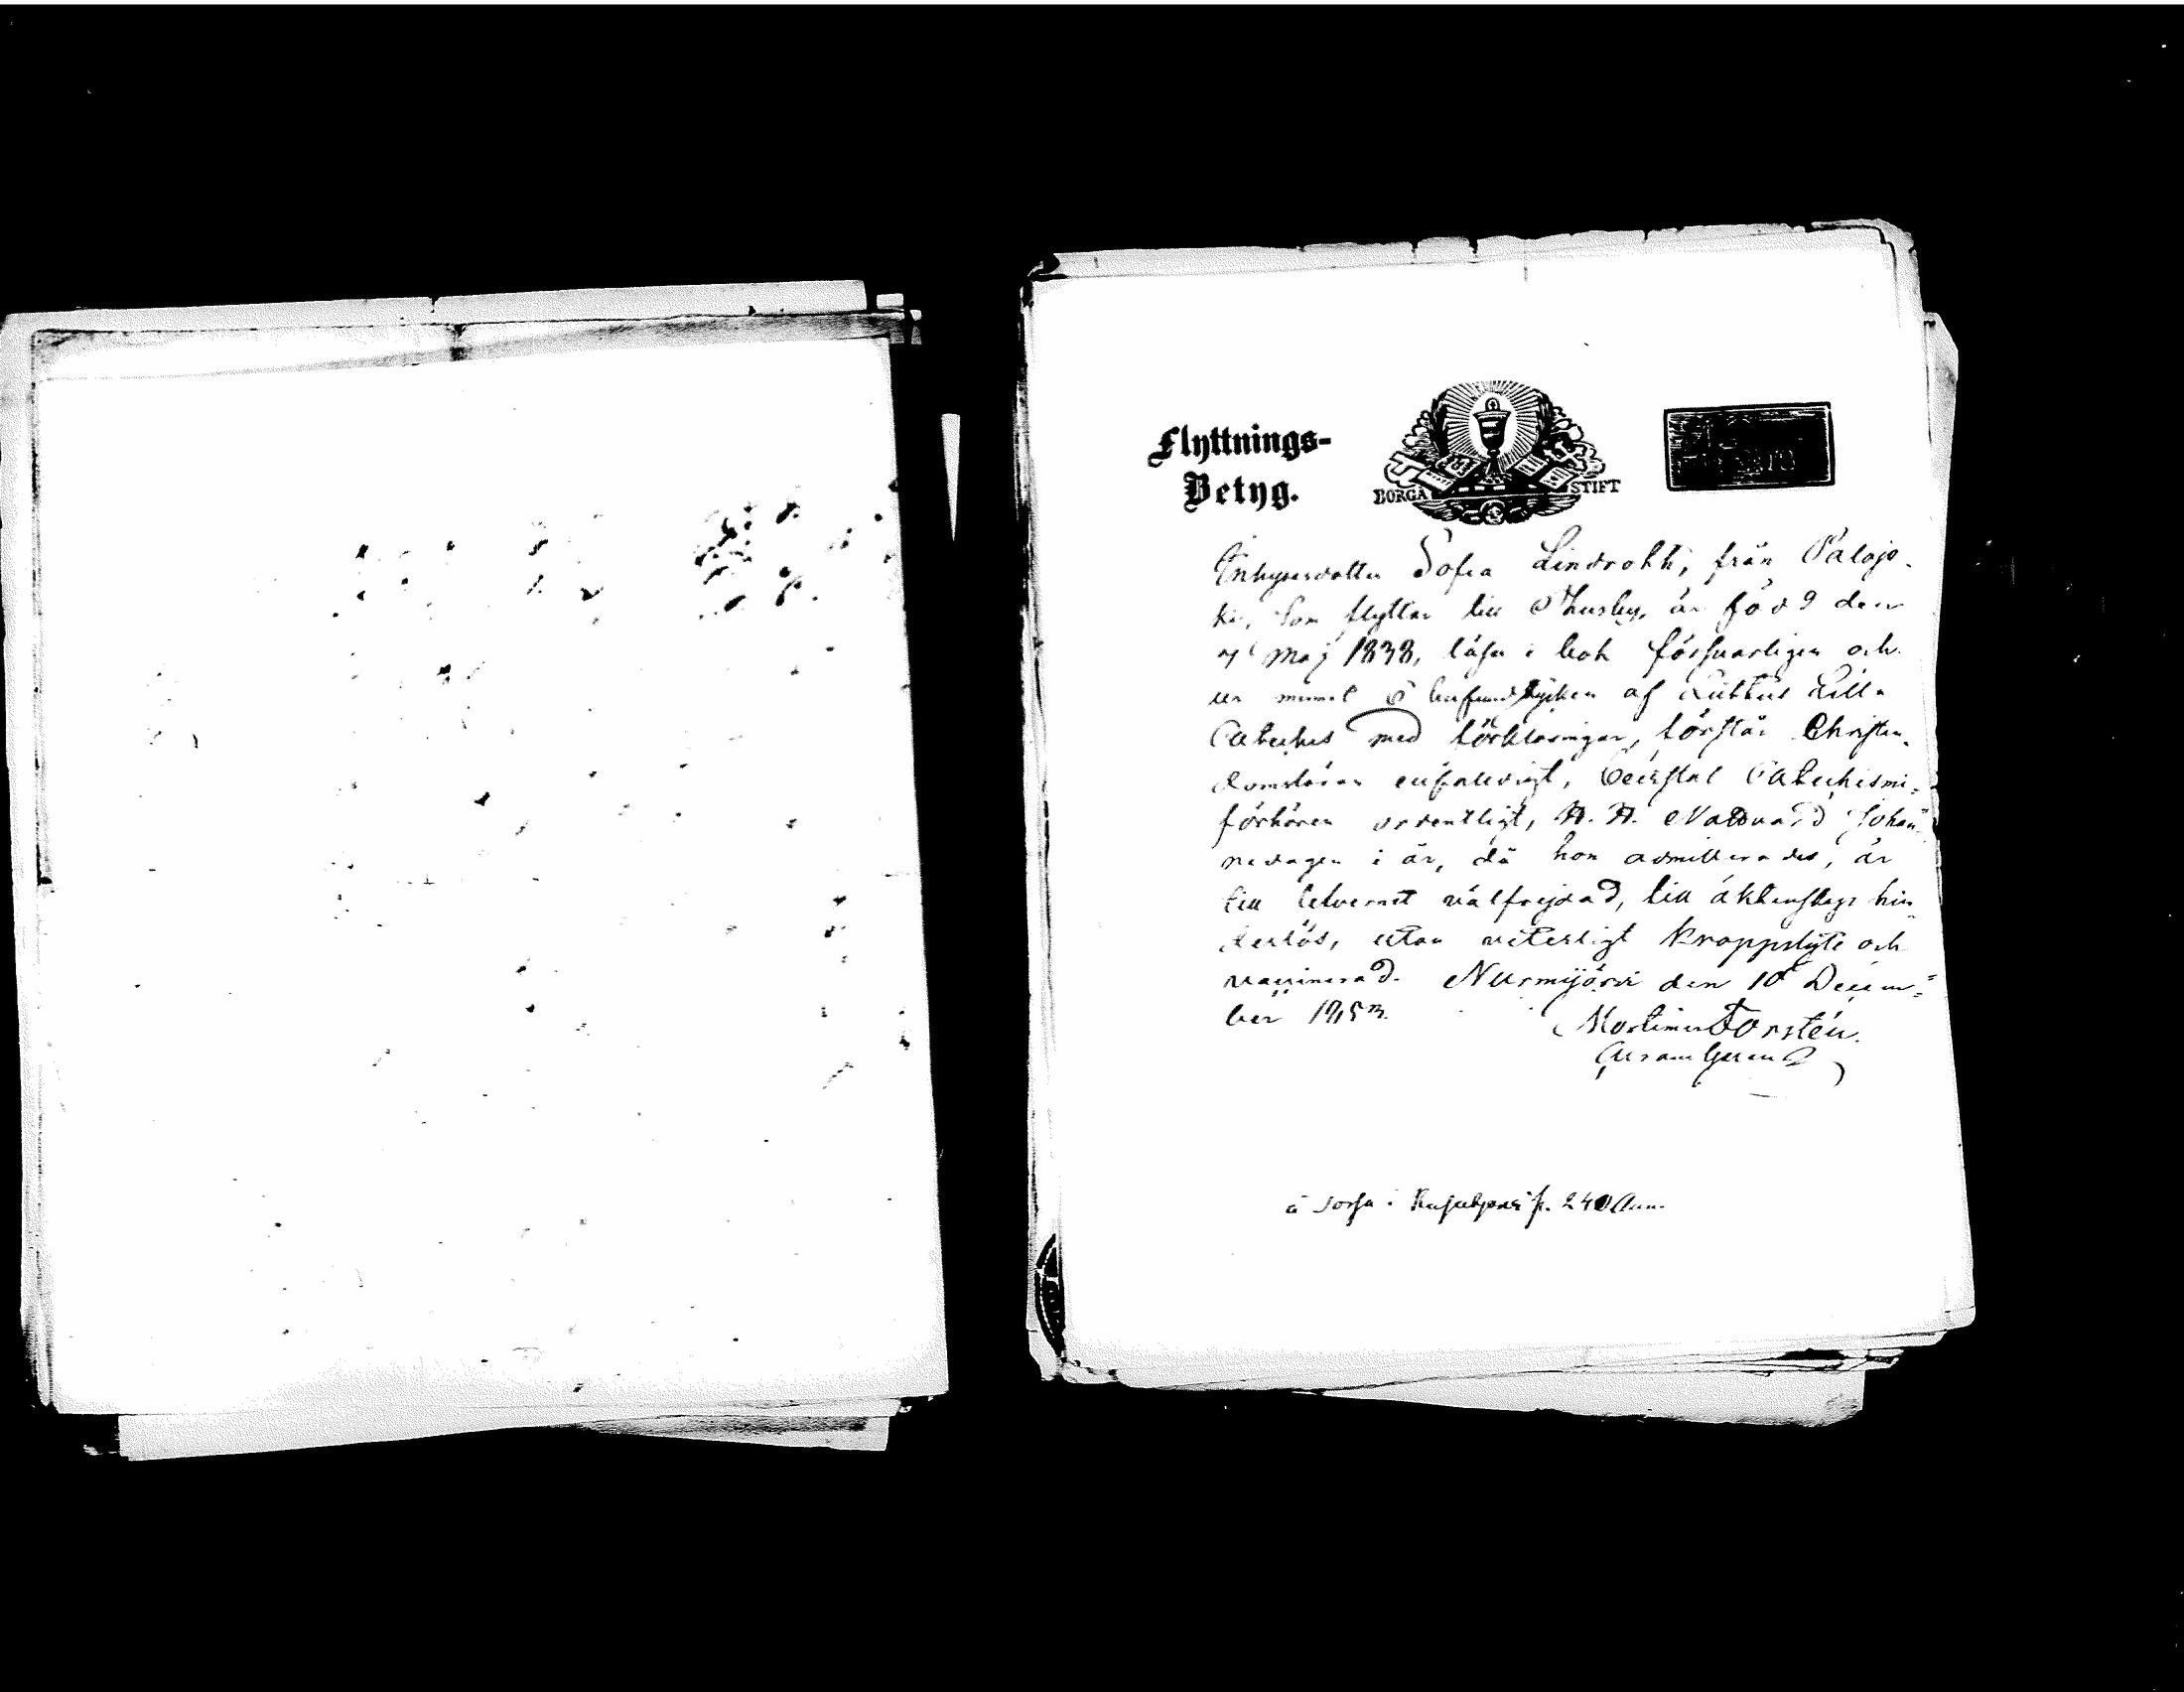 Flyttnings-
Betyg.
BORGÅ STIFT
Inhysesdotter Sofia Lindroth, från Palojo-
ki, som flyttar till Thusby, är född den
7 Maj 1838, läser i bok försvarligen och
ur minnet 5 hufvudstycken af Luthers Lilla
Cateches med förklaringar, förstår Christen-
domsläran enfaldigt, bevistat Catechismi-
förhören ordentligt, H. H. Nattvard Johan-
nedagen i år, då hon admitterades, är
till lefvernet välfrejdad, till äktenskap hin-
derlös, utan veterligt kroppslyte och
vaccinerad. Nurmijärvi den 10 Decem-
ber 1853.
Forstén.
240